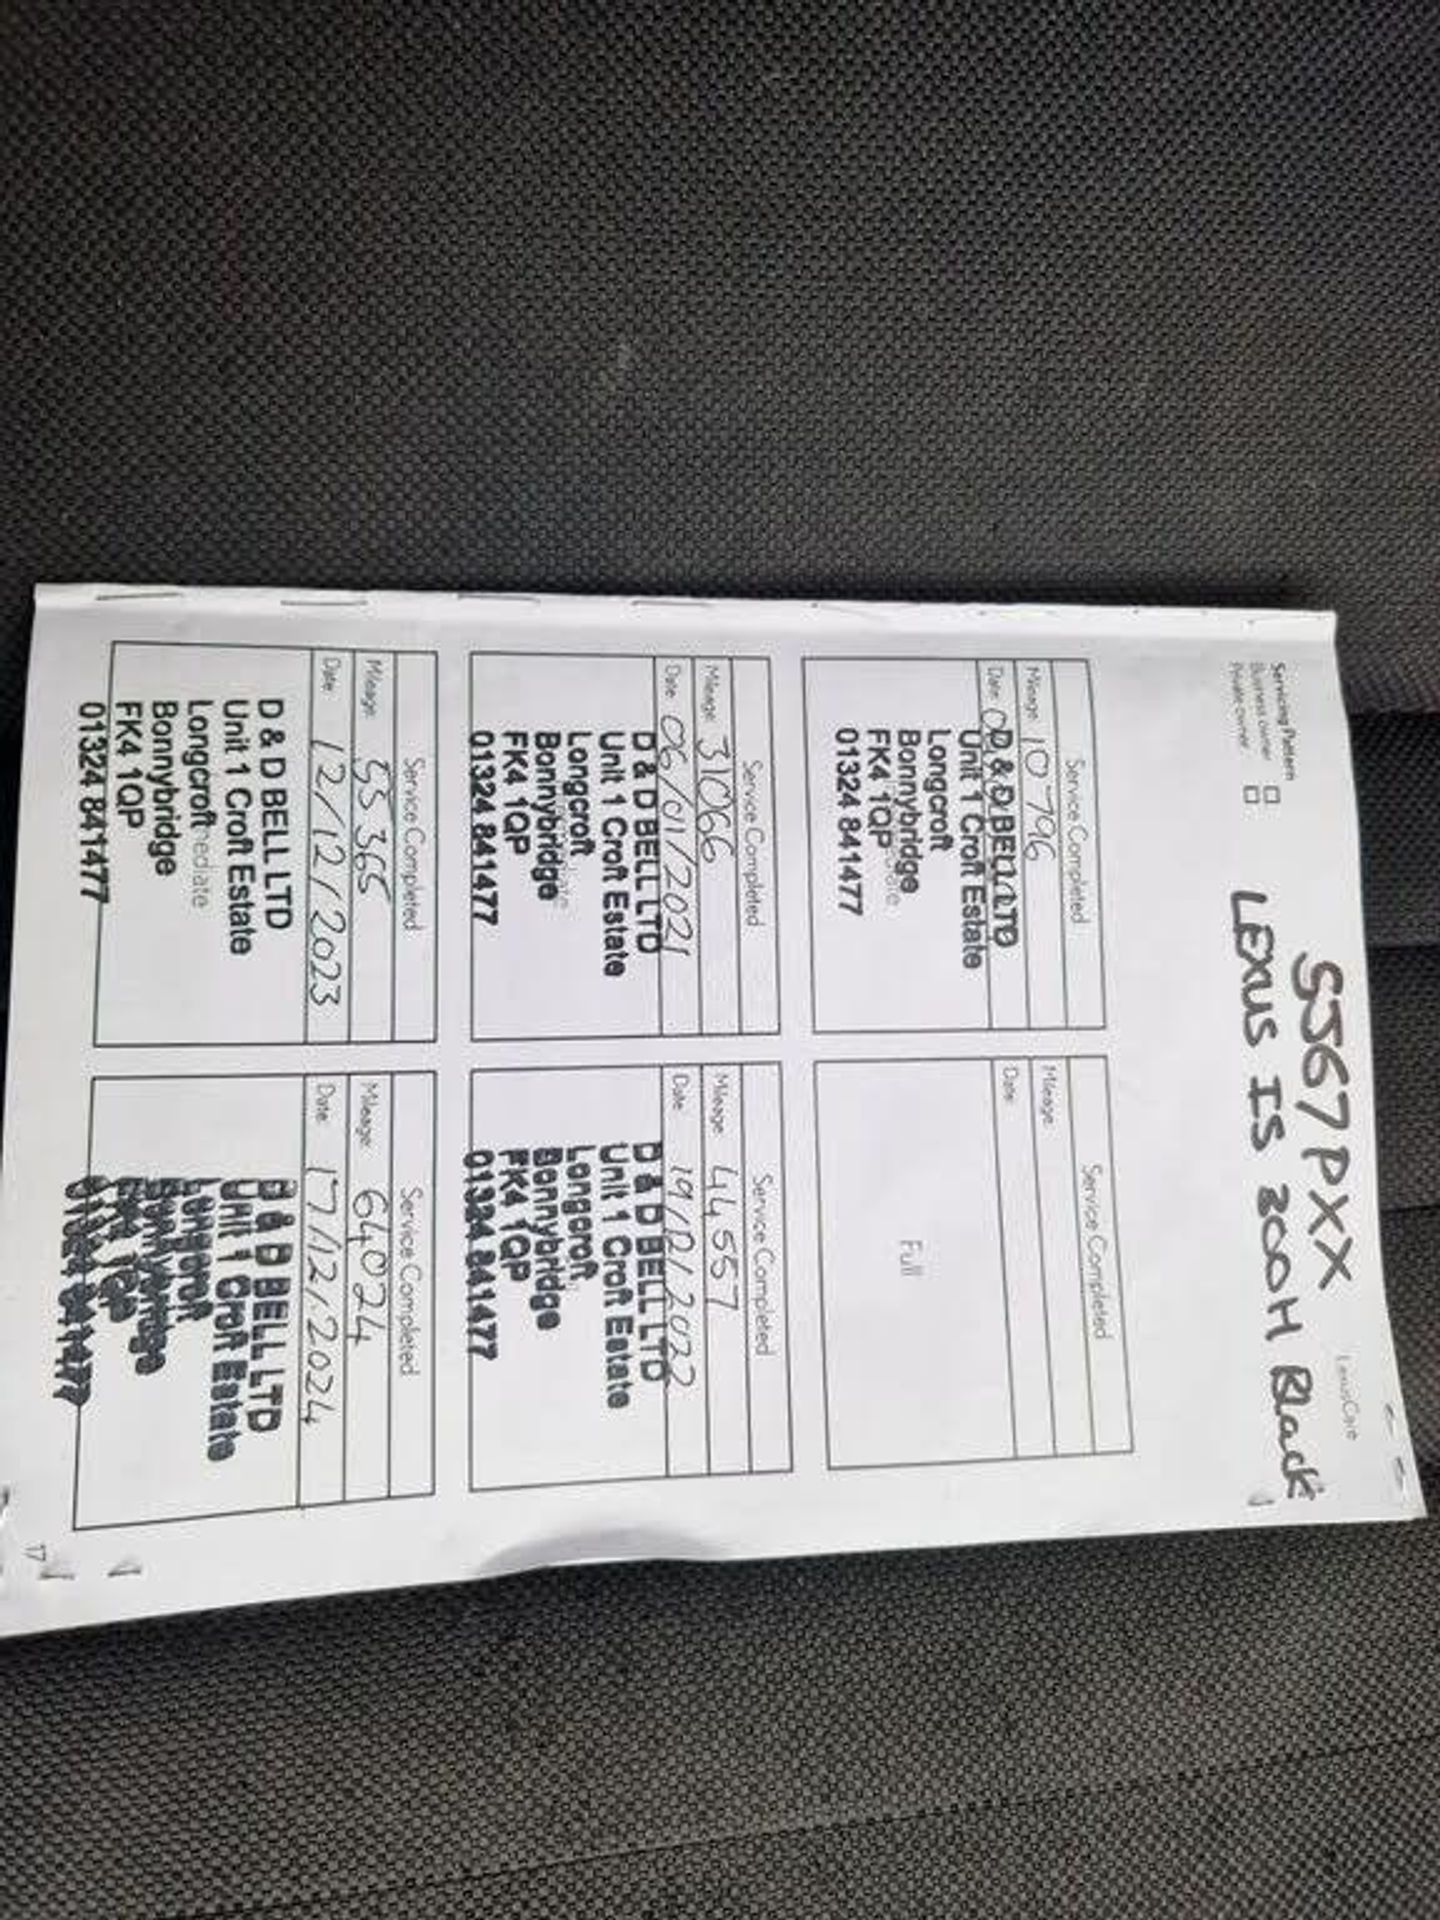 LexusCare
SJ67PXX
LEXUS IS 300H Black
Servicing Pattern
Business owner
Private owner
Service Completed
Mileage: 10796
Date:
D & D BELL LTD
Unit 1 Croft Estate
Longcroft
Bonnybridge
FK4 1QP
01324 841477
Service Completed
Mileage:
Date:
Full
Service Completed
Mileage: 31066
Date: 06/01/2021
D & D BELL LTD
Unit 1 Croft Estate
Longcroft
Bonnybridge
FK4 1QP
01324 841477
Service Completed
Mileage: 44557
Date: 19/12/2022
D & D BELL LTD
Unit 1 Croft Estate
Longcroft
Bonnybridge
FK4 1QP
01324 841477
Service Completed
Mileage: 55365
Date: 12/12/2023
D & D BELL LTD
Unit 1 Croft Estate
Longcroft
Bonnybridge
FK4 1QP
01324 841477
Service Completed
Mileage: 64024
Date: 17/12/2024
D & D BELL LTD
Unit 1 Croft Estate
Longcroft
Bonnybridge
FK4 1QP
01324 841477
17